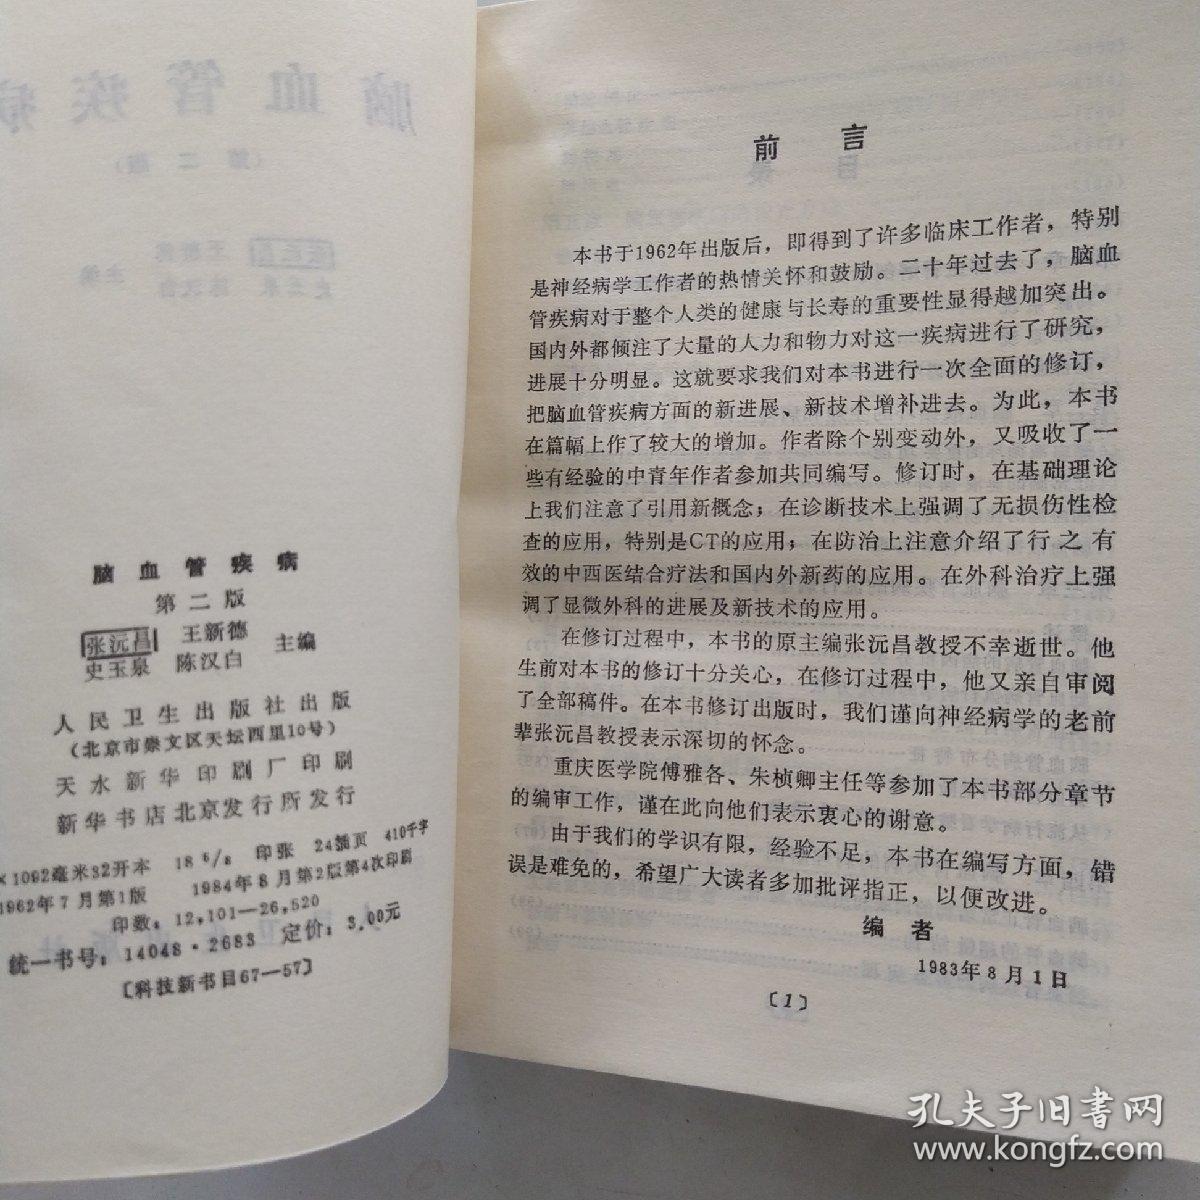 脑血管疾病
第二版
张沅昌 王新德
史玉泉 陈汉白 主编
人民卫生出版社出版
（北京市崇文区天坛西里10号）
天水新华印刷厂印刷
新华书店北京发行所发行
×1092毫米32开本 18 6/8 印张 24插页 410千字
1962年7月第1版 1984年8月第2版第4次印刷
印数：12,101—26,520
统一书号：14048·2683 定价：3.00元
〔科技新书目67—57〕
前 言
本书于1962年出版后，即得到了许多临床工作者，特别
是神经病学工作者的热情关怀和鼓励。二十年过去了，脑血
管疾病对于整个人类的健康与长寿的重要性显得越加突出。
国内外都倾注了大量的人力和物力对这一疾病进行了研究，
进展十分明显。这就要求我们对本书进行一次全面的修订，
把脑血管疾病方面的新进展、新技术增补进去。为此，本书
在篇幅上作了较大的增加。作者除个别变动外，又吸收了一
些有经验的中青年作者参加共同编写。修订时，在基础理论
上我们注意了引用新概念；在诊断技术上强调了无损伤性检
查的应用，特别是CT的应用；在防治上注意介绍了行之有
效的中西医结合疗法和国内外新药的应用。在外科治疗上强
调了显微外科的进展及新技术的应用。
在修订过程中，本书的原主编张沅昌教授不幸逝世。他
生前对本书的修订十分关心，在修订过程中，他又亲自审阅
了全部稿件。在本书修订出版时，我们谨向神经病学的老前
辈张沅昌教授表示深切的怀念。
重庆医学院傅雅各、朱桢卿主任等参加了本书部分章节
的编审工作，谨在此向他们表示衷心的谢意。
由于我们的学识有限，经验不足，本书在编写方面，错
误是难免的，希望广大读者多加批评指正，以便改进。
编 者
1983年8月1日
〔1〕
孔夫子旧书网
www.kongfz.com